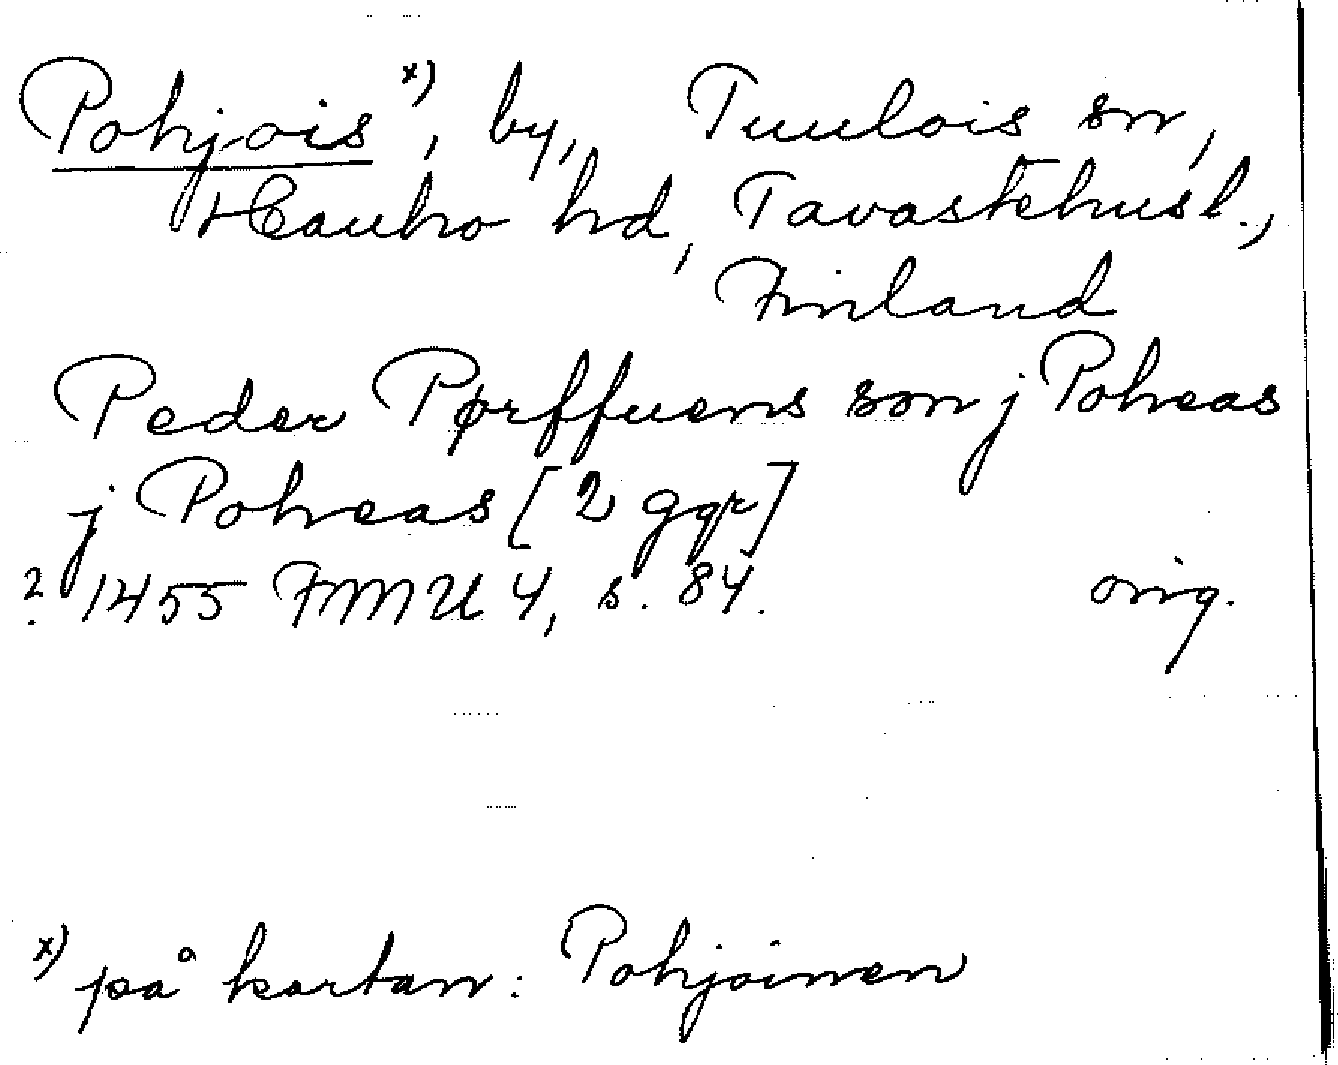 Pohjois x), by, Tuulois sn,
Hauho hd, Tavastehus l.,
Finland
Peder Pørffuens son j Poheas
j Poheas [2 ggr]
? 1455 FMU 4, s. 84. orig.
x) på kartan: Pohjoinen